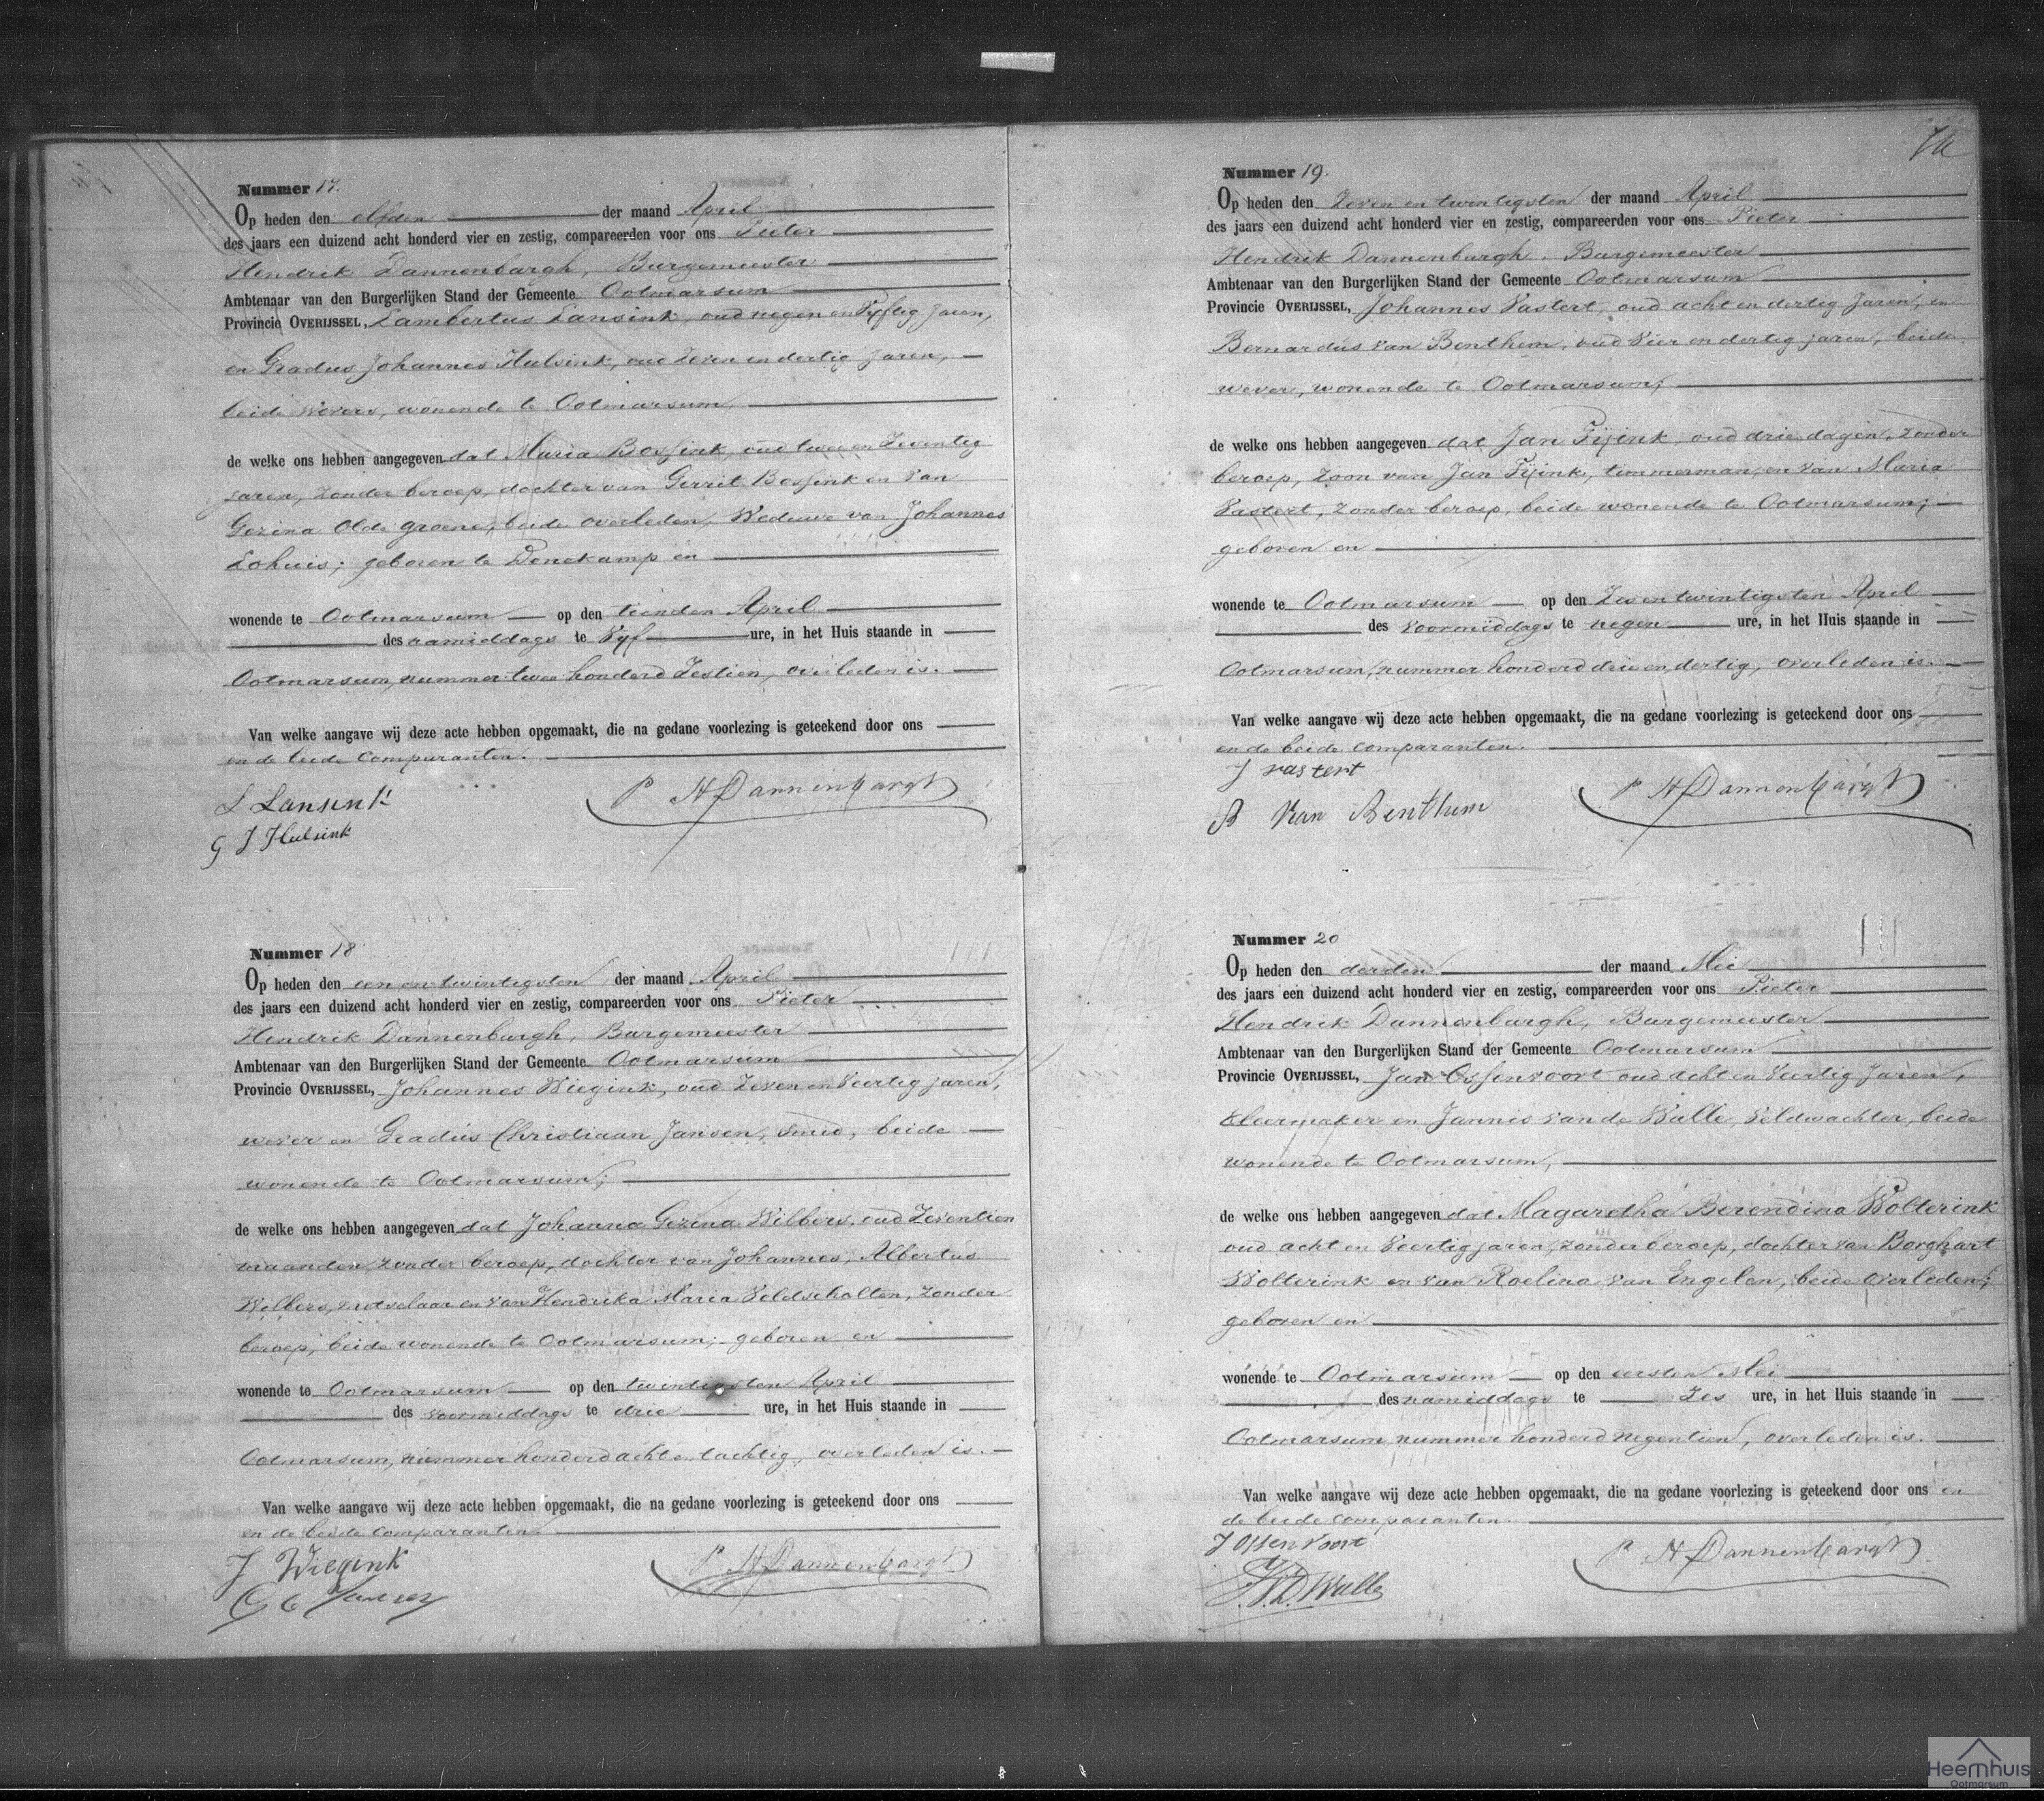 Nummer 17.
Op heden den elfden der maand April
des jaars een duizend acht honderd vier en zestig, compareerden voor ons Pieter
Hendrik Dannenbargh, Burgemeester
Ambtenaar van den Burgerlijken Stand der Gemeente Ootmarsum
Provincie OVERIJSSEL, Lambertus Lansink, oud negen en Vyftig jaren,
en Gradus Johannes Hulsink, oud Zeven en dertig jaren,
beide wevers, wonende te Ootmarsum
de welke ons hebben aangegeven dat Maria Bossink, oud twee en Zeventig
jaren, zonder beroep, dochter van Gerrit Bossink en van
Gezina Olde groene, beide overleden, Weduwe van Johannes
Lohuis; geboren te Denekamp en
wonende te Ootmarsum op den tienden April
des namiddags te Vyf ure, in het Huis staande in
Ootmarsum, nummer twee honderd Zestien, overleden is.
Van welke aangave wij deze acte hebben opgemaakt, die na gedane voorlezing is geteekend door ons
en de beide comparanten.
L Lansink
P H Dannenbargh
G J Hulsink
Nummer 18
Op heden den een en twintigsten der maand April
des jaars een duizend acht honderd vier en zestig, compareerden voor ons Pieter
Hendrik Dannenburgh, Burgemeester
Ambtenaar van den Burgerlijken Stand der Gemeente Ootmarsum
Provincie OVERIJSSEL, Johannes Wiegink, oud Zeven en Veertig jaren,
wever en Gradus Christiaan Jansen, smid, beide
wonende te Ootmarsum;
de welke ons hebben aangegeven dat Johanna Gezina Wilbers, oud Zeventien
maanden, zonder beroep, dochter van Johannes Albertus
Wilbers, metselaar en van Hendrika Maria Veldscholten, zonder
beroep, beide wonende te Ootmarsum; geboren en
wonende te Ootmarsum op den twintigsten April
des voormiddags te drie ure, in het Huis staande in
Ootmarsum, nummer honderd acht en tachtig, overleden is.
Van welke aangave wij deze acte hebben opgemaakt, die na gedane voorlezing is geteekend door ons
en de beide comparanten.
J Wiegink
P H Dannenbargh
G C Jansen
Nummer 19.
Op heden den Zeven en twintigsten der maand April
des jaars een duizend acht honderd vier en zestig, compareerden voor ons Pieter
Hendrik Dannenburgh, Burgemeester
Ambtenaar van den Burgerlijken Stand der Gemeente Ootmarsum
Provincie OVERIJSSEL, Johannes Vastert, oud acht en dertig jaren, en
Bernardus van Benthem, oud Vier en dertig jaren, beide
wever, wonende te Ootmarsum;
de welke ons hebben aangegeven dat Jan Fijink, oud drie dagen, zonder
beroep, zoon van Jan Fijink, timmerman, en van Maria
Vastert, zonder beroep, beide wonende te Ootmarsum;
geboren en
wonende te Ootmarsum op den Zes en twintigsten April
des voormiddags te negen ure, in het Huis staande in
Ootmarsum, nummer honderd drie en dertig, overleden is.
Van welke aangave wij deze acte hebben opgemaakt, die na gedane voorlezing is geteekend door ons
en de beide comparanten.
J vastert
P H Dannenbargh
B Van Benthem
Nummer 20
Op heden den derden der maand Mei
des jaars een duizend acht honderd vier en zestig, compareerden voor ons Pieter
Hendrik Dannenburgh, Burgemeester
Ambtenaar van den Burgerlijken Stand der Gemeente Ootmarsum
Provincie OVERIJSSEL, Jan Ossenvoort oud acht en Veertig jaren,
kleermaker en Jannis van de Walle, Veldwachter, beide
wonende te Ootmarsum,
de welke ons hebben aangegeven dat Magaretha Berendina Wolterink
oud acht en Veertig jaren, zonder beroep, dochter van Borghart
Wolterink en van Roelina van Engelen, beide overleden;
geboren en
wonende te Ootmarsum op den eersten Mei
des namiddags te Zes ure, in het Huis staande in
Ootmarsum nummer honderd negentien, overleden is.
Van welke aangave wij deze acte hebben opgemaakt, die na gedane voorlezing is geteekend door ons en
de beide comparanten.
J Ossenvoort
P H Dannenbargh
J.V.D. Walle
Heemhuis
Ootmarsum